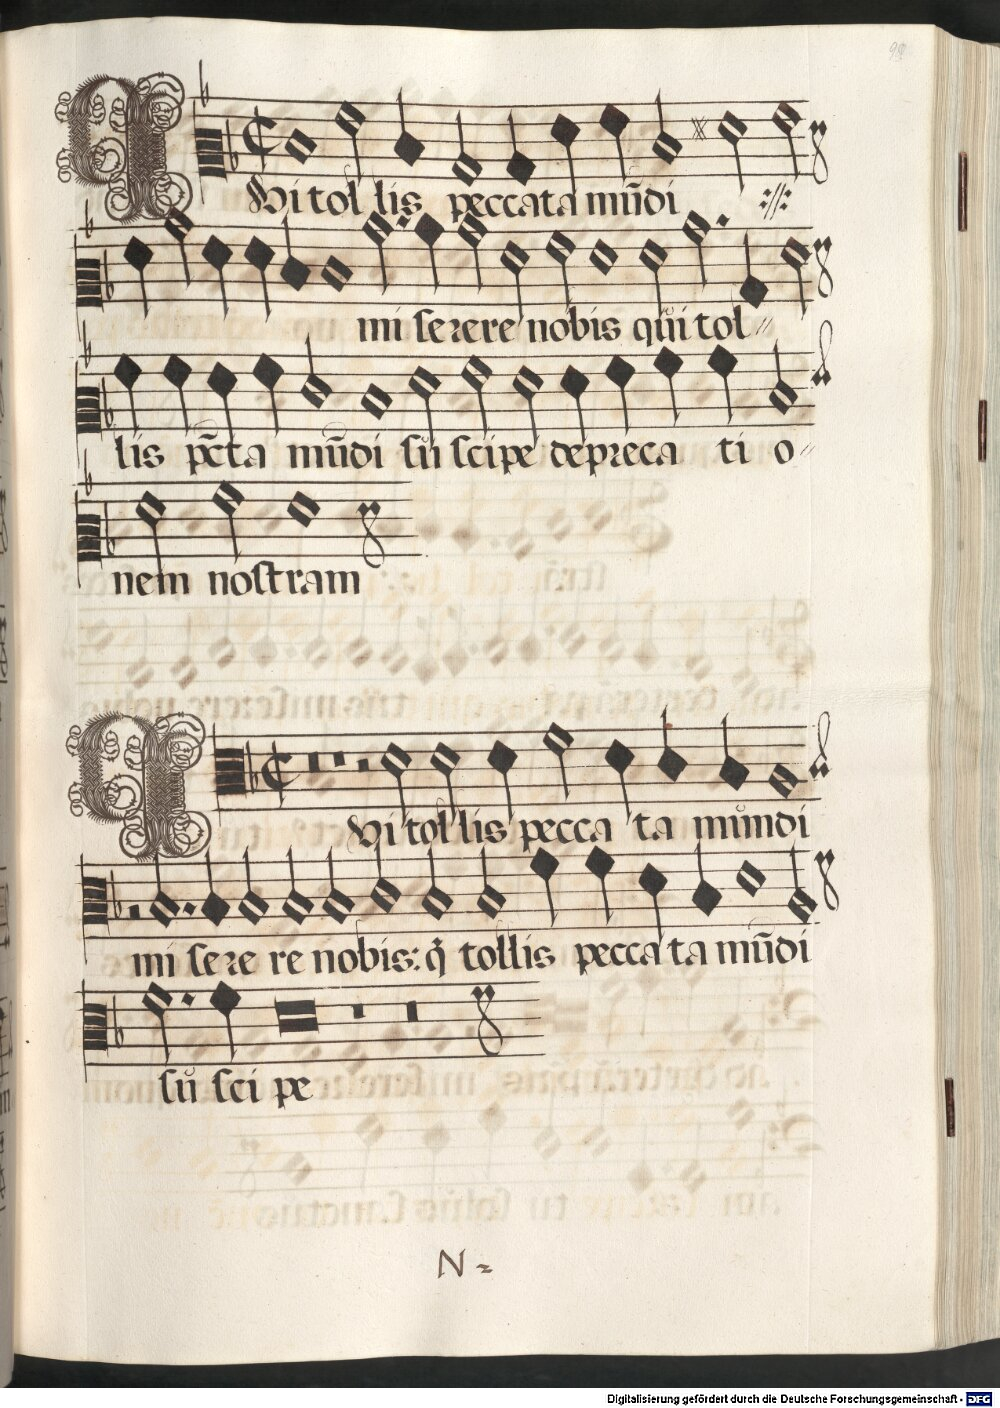 QVi tol lis peccata mũdi :/:
mi serere nobis qui tol〃
lis pc̄ta mũdi su scipe depreca ti o〃
nem nostram
QVi tollis pecca ta mundi
mi sere re nobis: q̃ tollis pecca ta mũdi
su sci pe
N 2
Digitalisierung gefördert durch die Deutsche Forschungsgemeinschaft - DFG